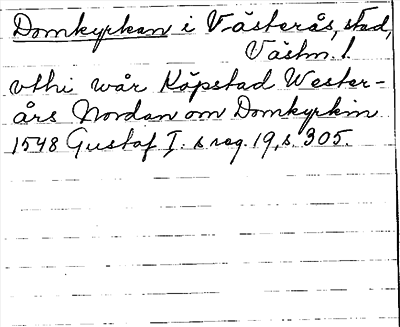 Domkyrkan i Västerås, stad,
Västm. l.
vthi wår Köpstad Wester-
års Nordan om Domkyrkin
1548 Gustaf I:s reg. 19, s. 305.